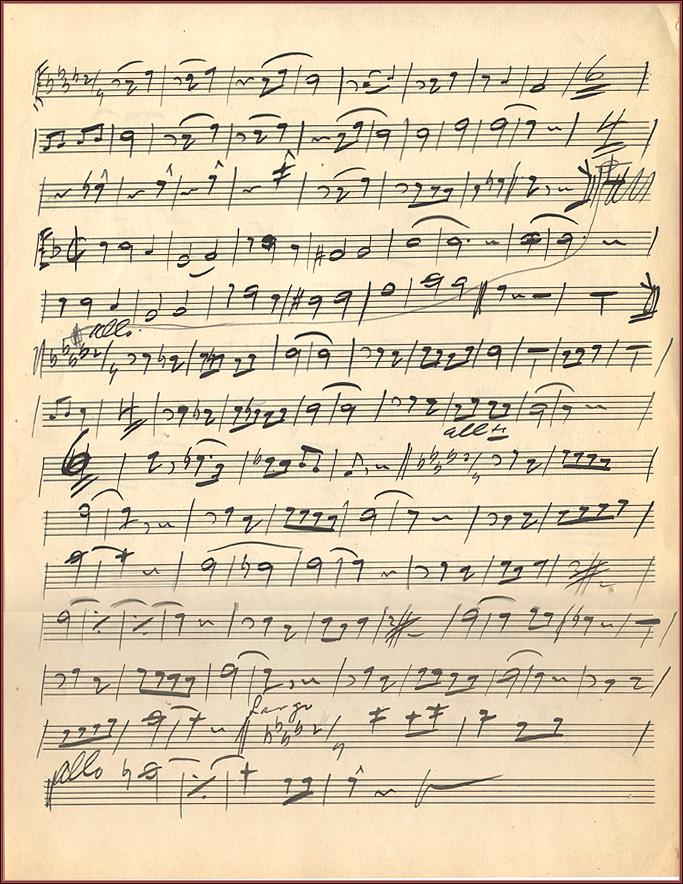 6
4
allo
allo
Largo
allo